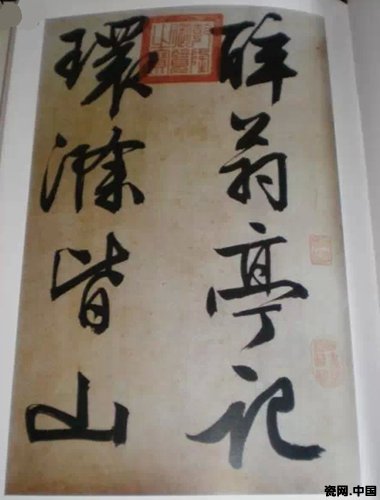 醉翁亭记
環滁皆山
瓷网.中国